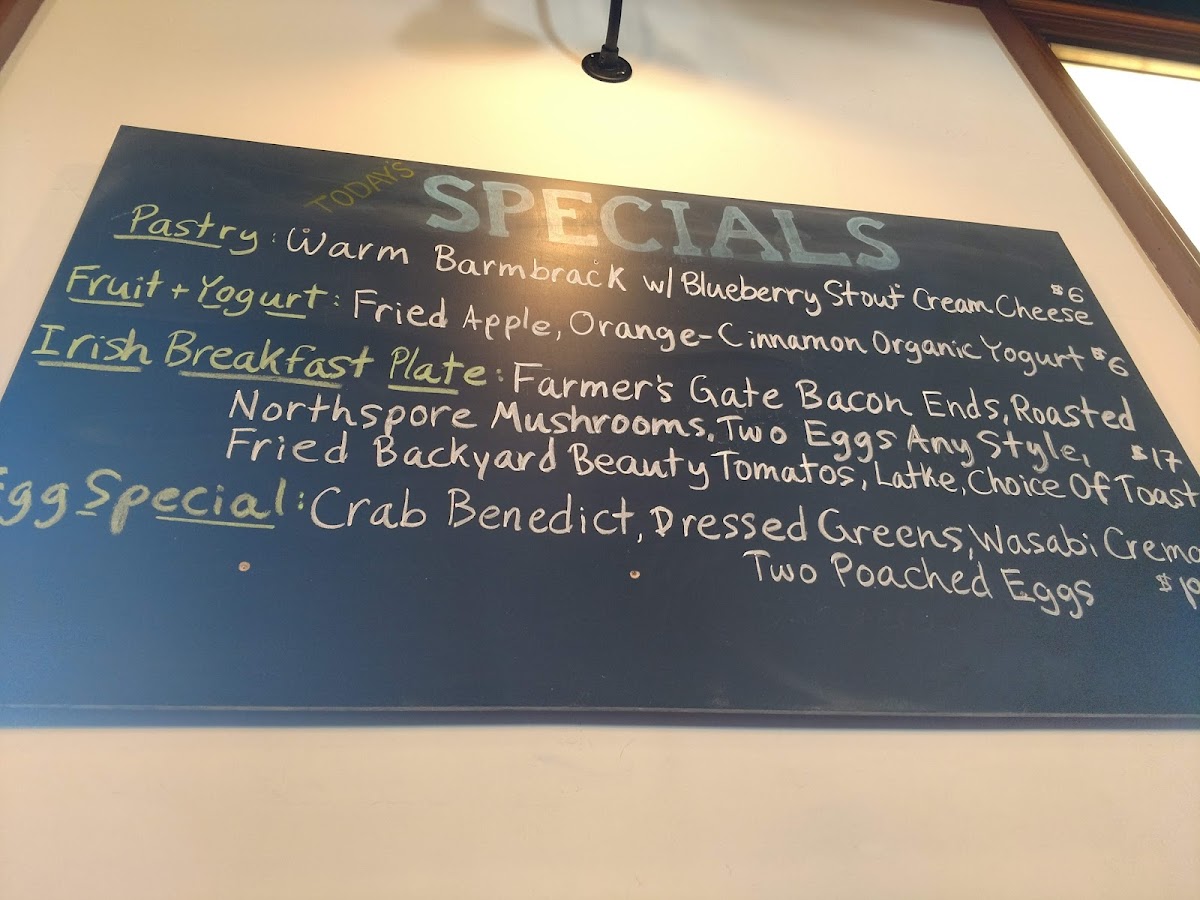 TODAY'S SPECIALS
Pastry: Warm Barmbrack w/ Blueberry Stout Cream Cheese $6
Fruit + Yogurt: Fried Apple, Orange-Cinnamon Organic Yogurt $6
Irish Breakfast Plate: Farmer's Gate Bacon Ends, Roasted
Northspore Mushrooms, Two Eggs Any Style, $17
Fried Backyard Beauty Tomatos, Latke, Choice Of Toast
Egg Special: Crab Benedict, Dressed Greens, Wasabi Crema
Two Poached Eggs